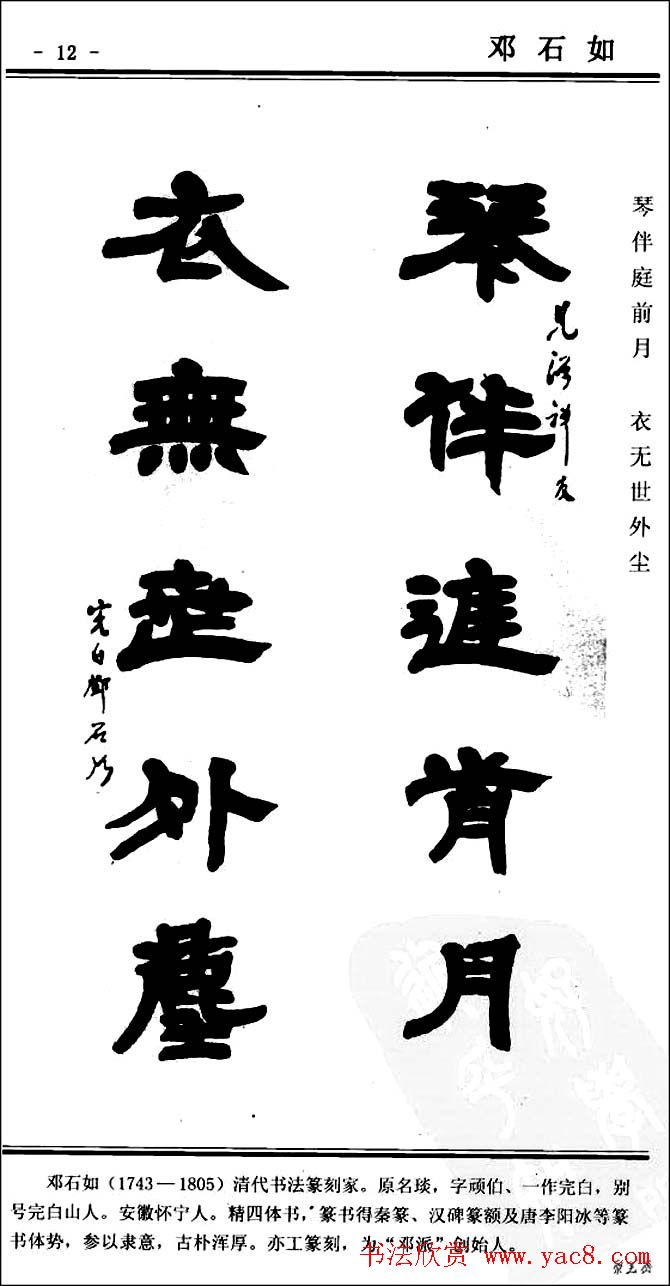 - 12 -
邓石如
琴伴庭前月 衣无世外尘
琴伴庭前月
衣無世外塵
完白鄧石如
邓石如（1743—1805）清代书法篆刻家。原名琰，字顽伯、一作完白，别
号完白山人。安徽怀宁人。精四体书，篆书得秦篆、汉碑篆额及唐李阳冰等篆
书体势，参以隶意，古朴浑厚。亦工篆刻，为“邓派”创始人。
书法欣赏 www.yac8.com